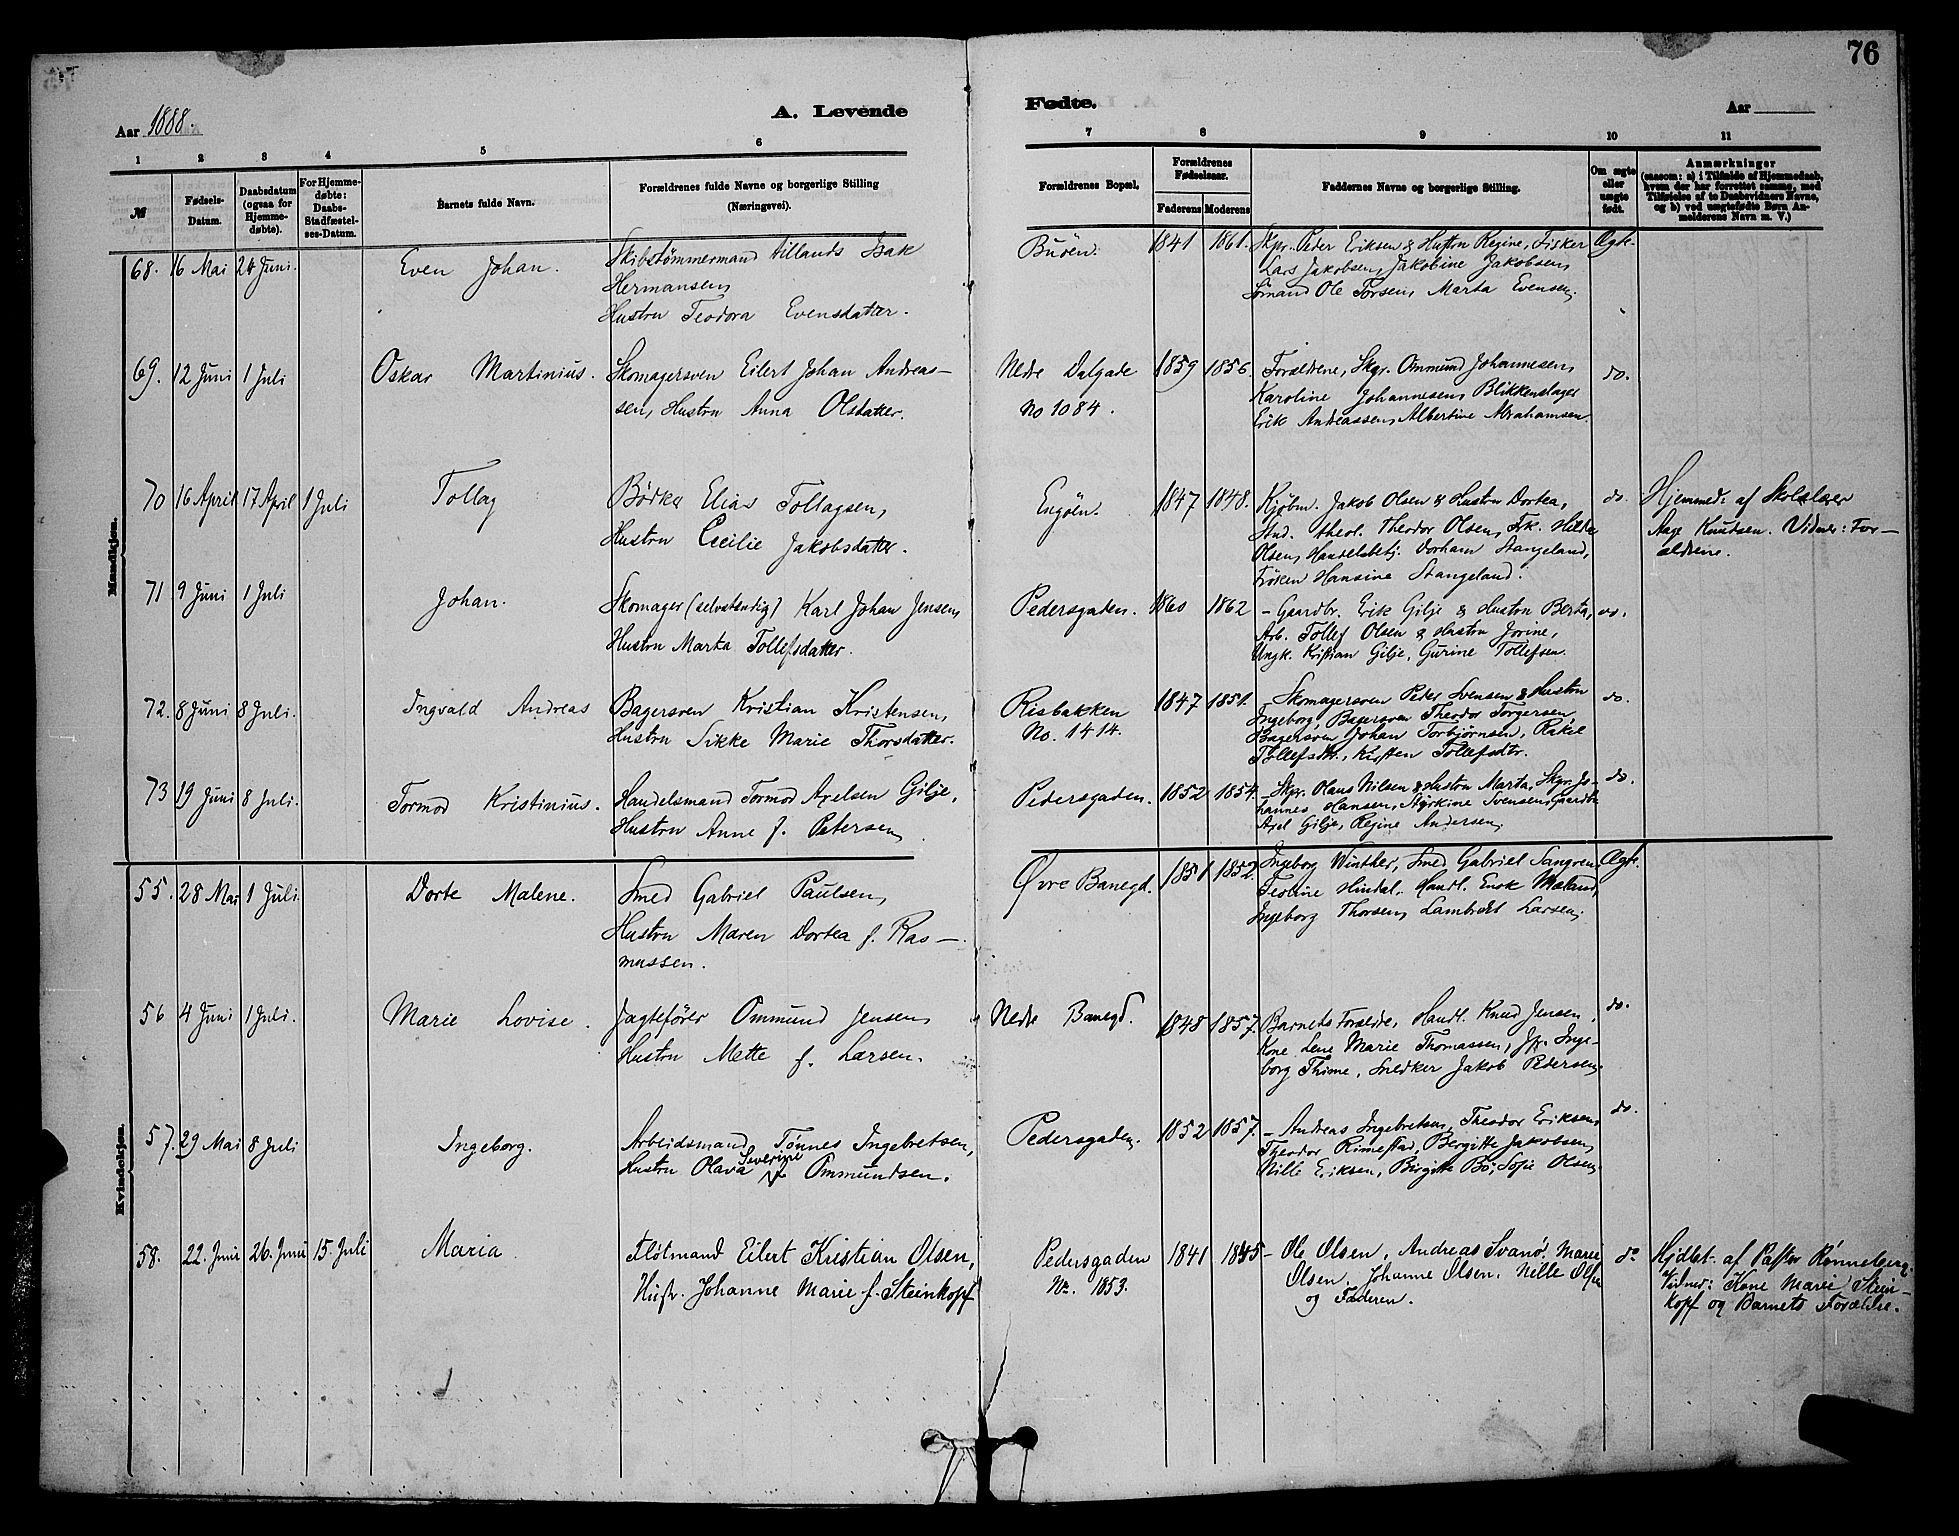 76
Aar 1888.
A. Levende
Fødte.
Aar
1 2 3 4 5 6 7 8 9 10 11
№
Fødsels-
Datum.
Daabsdatum
(ogsaa for
Hjemme-
døbte).
For Hjemme-
døbte:
Daabs-
Stadfæstel-
ses-Datum.
Barnets fulde Navn.
Forældrenes fulde Navne og borgerlige Stilling
(Næringsvei).
Forældrenes Bopæl.
Forældrenes
Fødselsaar.
Faderens Moderens
Faddernes Navne og borgerlige Stilling.
Om ægte
eller
uægte
født.
Anmærkninger
(saasom: a) i Tilfælde af Hjemmedaab,
hvem der har forrettet samme, med
Tilføielse af to Daabsvidners Navne,
og b) ved uægtefødte Børn An-
melderens Navn m. V.)
Mandkjøn.
68. 16 Mai 24 Juni.
Even Johan.
Skibstømmermand Isak
Hermansen,
Hustru Teodora Evensdatter.
Buøen.
1841 1861.
Skpr. Peder Eriksen & Hustru Regine, Fisker
Lars Jakobsen, Jakobine Jakobsen,
Sømand Ole Torsen, Marta Evensen.
Ægte.
69. 12 Juni 1 Juli
Oskar Martinius.
Skomagersven Eilert Johan Andreas-
sen, Hustru Anna Olsdatter.
Nedre Dalgade
No 1084.
1859 1856.
Forældrene, Skpr. Ommund Johannesen,
Karoline Johannesen, Blikkenslager
Erik Andreassen, Albertine Abrahamsen.
do.
70 16 April 17 April 1 Juli
Tollag
Bødker Elias Tollagsen,
Hustru Cecilie Jakobsdatter.
Engøen.
1847 1848.
Kjøbm. Jakob Olsen & Hustru Dortea,
Stud. theol. Theodor Olsen, Frk. Hilda
Olsen, Handelsbetj. Dorham Stangeland,
Frøken Hansine Stangeland.
do.
Hjemmed: af Skolelærer
Aage Knudsen. Vidner: For-
ældrene.
71 9 Juni 1 Juli
Johan.
Skomager (selvstændig) Karl Johan Jensen,
Hustru Marta Tollefsdatter.
Pedersgaden.
1860 1862
- Gaardbr. Erik Gilje & Hustru Berta,
Arb. Tollef Olsen & Hustru Jorine,
Ungk. Kristian Gilje, Gurine Tollefsen.
do.
72. 8 Juni 8 Juli.
Ingvald Andreas
Bagersven Kristian Kristensen,
Hustru Sikke Marie Thorsdatter.
Risbakken
No. 1414.
1847 1851.
- Skomagersven Peder Svensen & Hustru
Ingeborg, Bagersven Theodor Torgersen,
Bagersven Johan Torbjørnsen, Rakel
Tollefsdtr., Kirsten Tollefsdtr.
do.
73 19 Juni 8 Juli.
Tormod Kristinius.
Handelsmand Tormod Axelsen Gilje,
Hustru Anne f. Petersen,
Pedersgaden.
1852 1854.
- Skpr. Olaus Nilsen & Hustru Marta, Skpr. Jo-
hannes Hansen, Styrkine Svensen, Gaardb.
Axel Gilje, Regine Andersen,
do.
Kvindekjøn.
55. 28 Mai 1 Juli.
Dorte Malene.
Smed Gabriel Paulsen,
Hustru Maren Dortea f. Ras-
mussen.
Øvre Banegd.
1851 1852.
Ingeborg Winther, Smed Gabriel Tangren,
Teoline Hindal. Handl. Enok Mæland,
Ingeborg Thorsen, Lambert Larsen,
Ægte.
56 4 Juni 1 Juli.
Marie Lovise.
Jagtefører Ommund Jensen,
Hustru Mette f. Larsen.
Nedre Banegd.
1848 1857.
Barnets Forældre, Handl. Knud Jensen,
Kone Lene Marie Thomassen, Jp. Inge-
borg Thime, Snedker Jakob Pedersen,
do.
57. 29 Mai 8 Juli
Ingeborg.
Arbeidsmand Tønnes Ingebretsen,
Hustru Olava Severine f. Ommundsen.
Pedersgaden.
1852 1857.
- Andreas Ingebretsen, Theodor Eriksen,
Theodor Rimestad, Bergitte Jakobsen,
Nille Eriksen, Birgitte Bø, Sofie Olsen,
do.
58. 22. Juni 26. Juni 15. Juli
Maria.
Fløtmand Eilert Kristian Olsen,
Hustr. Johanne Marie f. Steinkopf
Pedersgaden
No. 1853.
1841 1845
- Ole Olsen, Andreas Svanø. Marie
Olsen. Johanne Olsen. Nille Olsen
og Faderen.
do
Hjdbt. af Pastor Rønneberg.
Vidner: Kone Marie Stein-
kopf og Barnets Forældre.